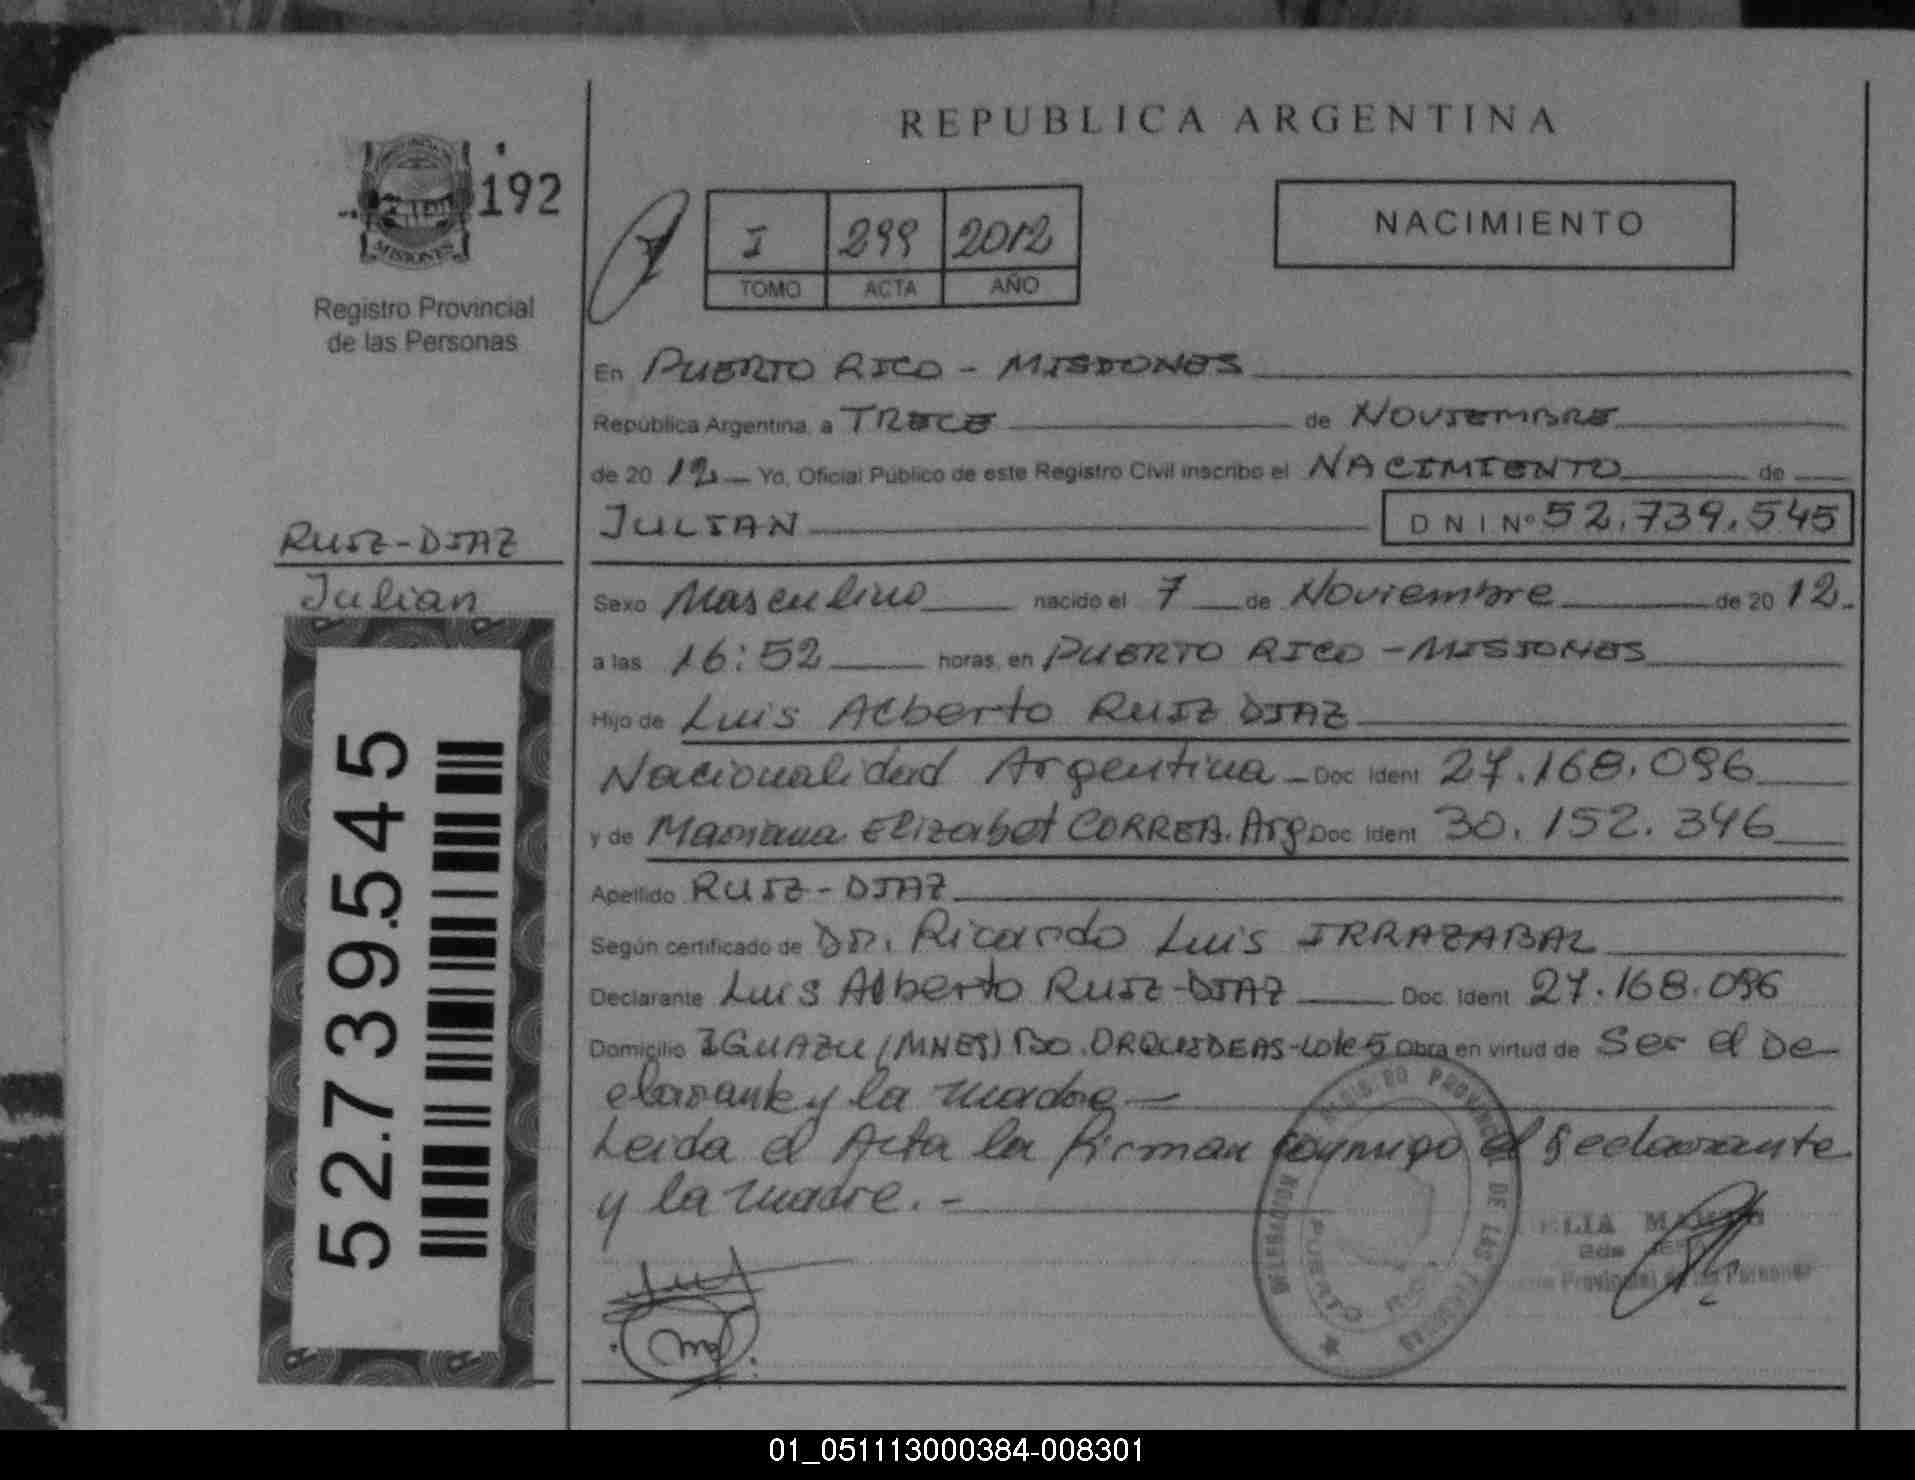 REPUBLICA ARGENTINA
192
MISIONES
Registro Provincial
de las Personas
I 299 2012
TOMO ACTA AÑO
NACIMIENTO
En PUERTO RICO - MISIONES
República Argentina, a TRECE de NOVIEMBRE
de 20 12 Yo, Oficial Público de este Registro Civil inscribo el NACIMIENTO de
JULIAN DNI Nº 52.739.545
RUIZ-DIAZ
Julian
52.739.545
Sexo Masculino nacido el 7 de Noviembre de 20 12.
a las 16:52 horas, en PUERTO RICO - MISIONES
Hijo de Luis Alberto RUIZ DIAZ
Nacionalidad Argentina Doc Ident 27.168.096
y de Mariana Elizabet CORREA. Arg. Doc Ident 30.152.346
Apellido RUIZ-DIAZ
Según certificado de Dr. Ricardo Luis IRRAZABAL
Declarante Luis Alberto RUIZ-DIAZ Doc. Ident 27.168.096
Domicilio IGUAZU (MNES) Bo. ORQUIDEAS-Lote 5 Obra en virtud de Ser el De-
clarante y la madre
Leida el Acta la firman conmigo el declarante
y la madre.-
DELEGACION REGISTRO PROVINCIAL DE LAS PERSONAS
PUERTO RICO
ELIA
Provincial de las Personas
01_051113000384-008301